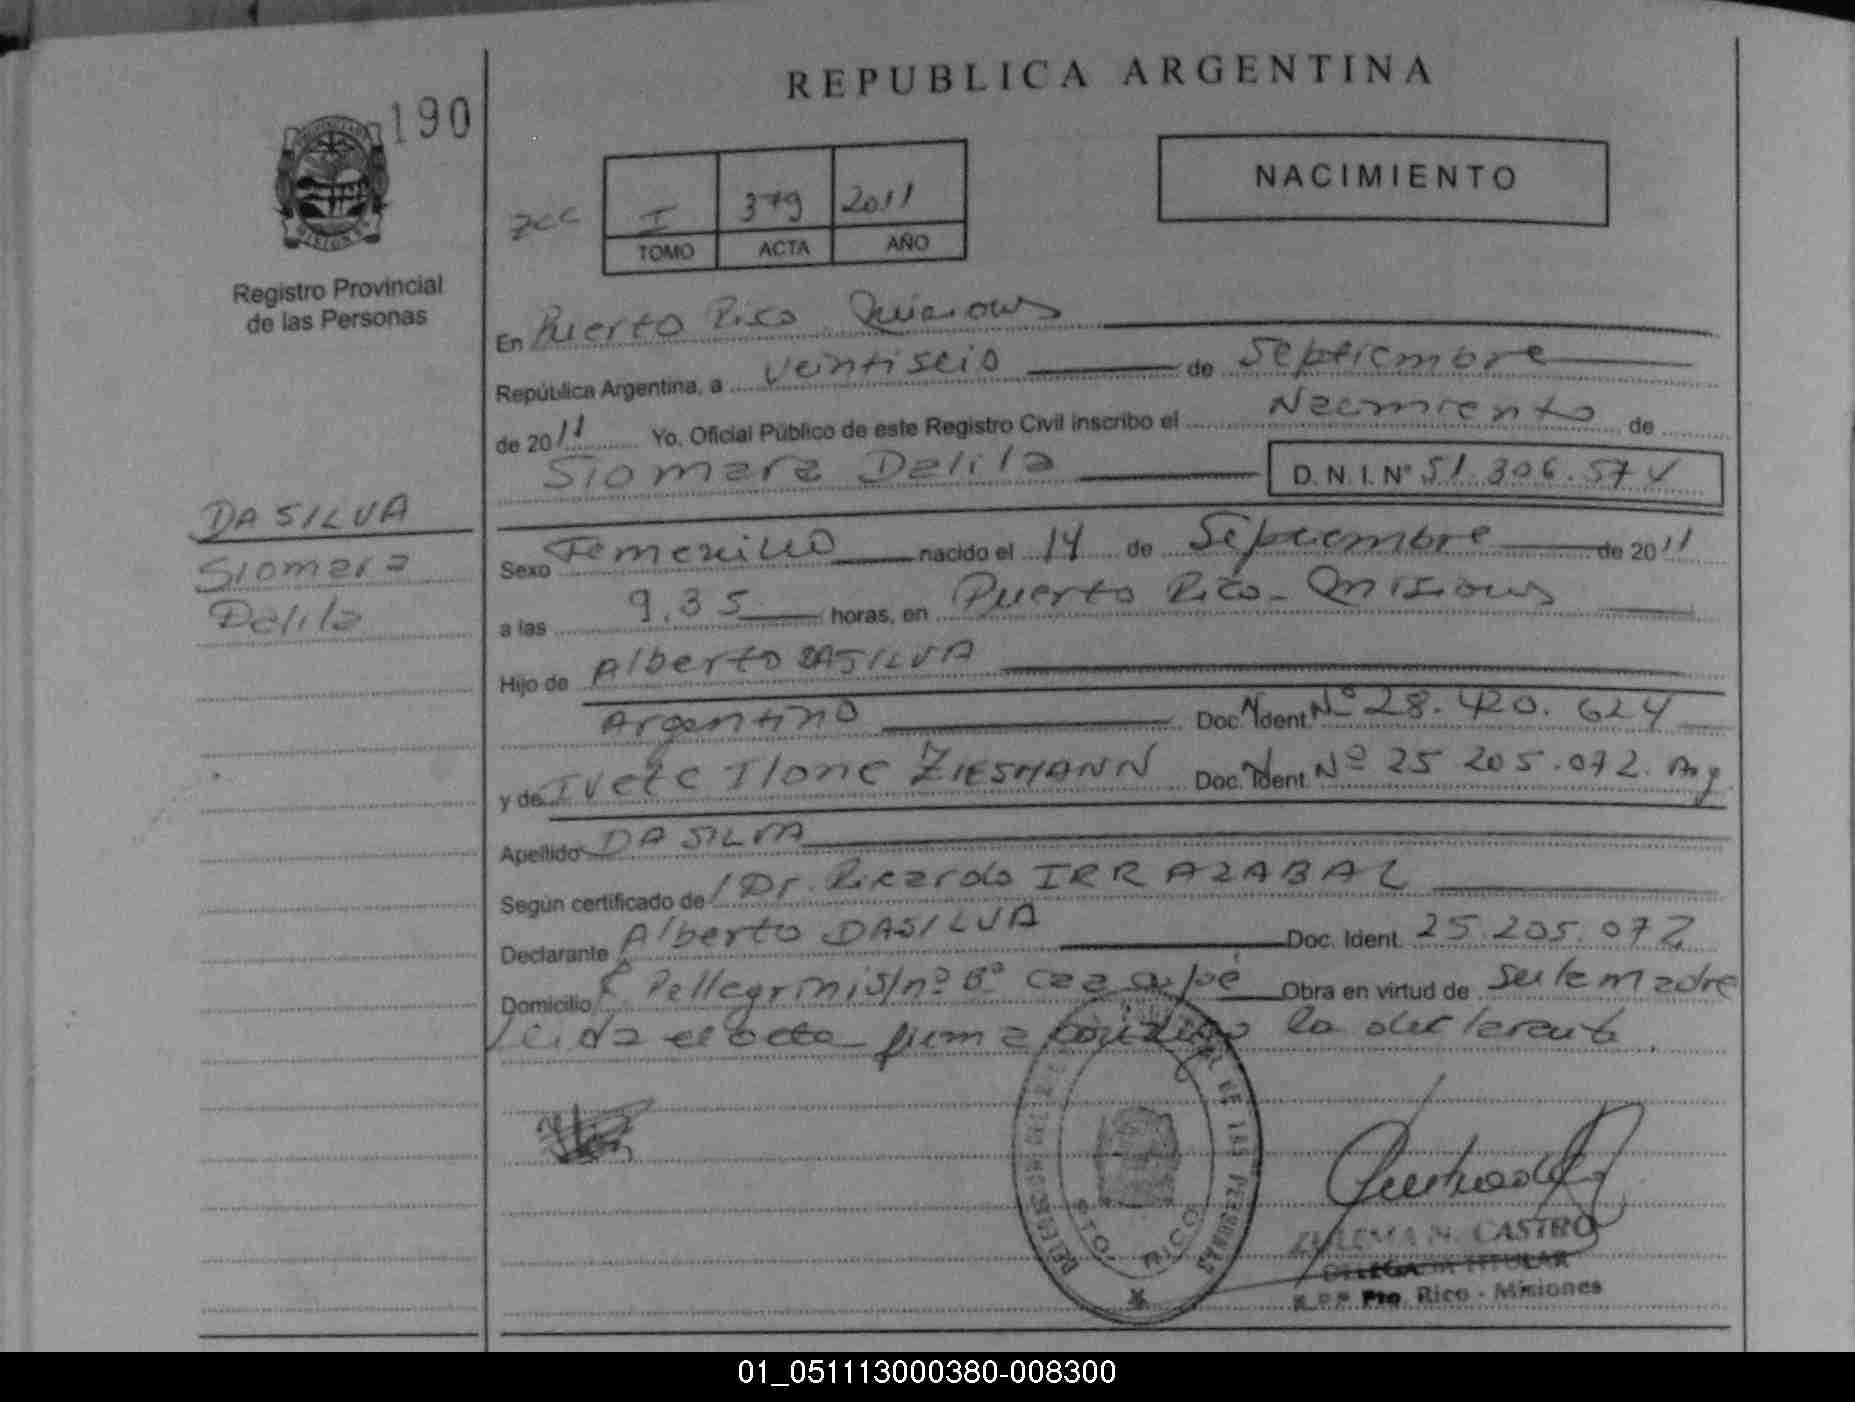 190
REPUBLICA ARGENTINA
NACIMIENTO
I 379 2011
TOMO ACTA AÑO
Registro Provincial
de las Personas
En Puerto Rico Misiones
República Argentina, a veintiseis de Septiembre
de 2011 Yo, Oficial Público de este Registro Civil inscribo el Nacimiento de
Siomara Dalila D. N. I. Nº 51.306.574
DA SILVA
Siomara
Dalila
Sexo Femenino nacido el 14 de Septiembre de 2011
a las 9.35 horas, en Puerto Rico - Misiones
Hijo de Alberto DA SILVA
Argentino Doc. Ident. Nº 28.420.624
y de Ivete Ilone ZIESMANN Doc. Ident. Nº 25 205.072. Arg
Apellido DA SILVA
Según certificado de Dr. Ricardo IRRAZABAL
Declarante Alberto DA SILVA Doc. Ident. 25.205.072
Domicilio C. Pellegrini s/nº Bº Caacupé Obra en virtud de ser la madre
leida el acta firma conmigo la declarante.
REGISTRO PROVINCIAL DE LAS PERSONAS
PTO. RICO
ZULEMA N. CASTRO
DELEGADA TITULAR
R.P.P Pto. Rico - Misiones
01_051113000380-008300